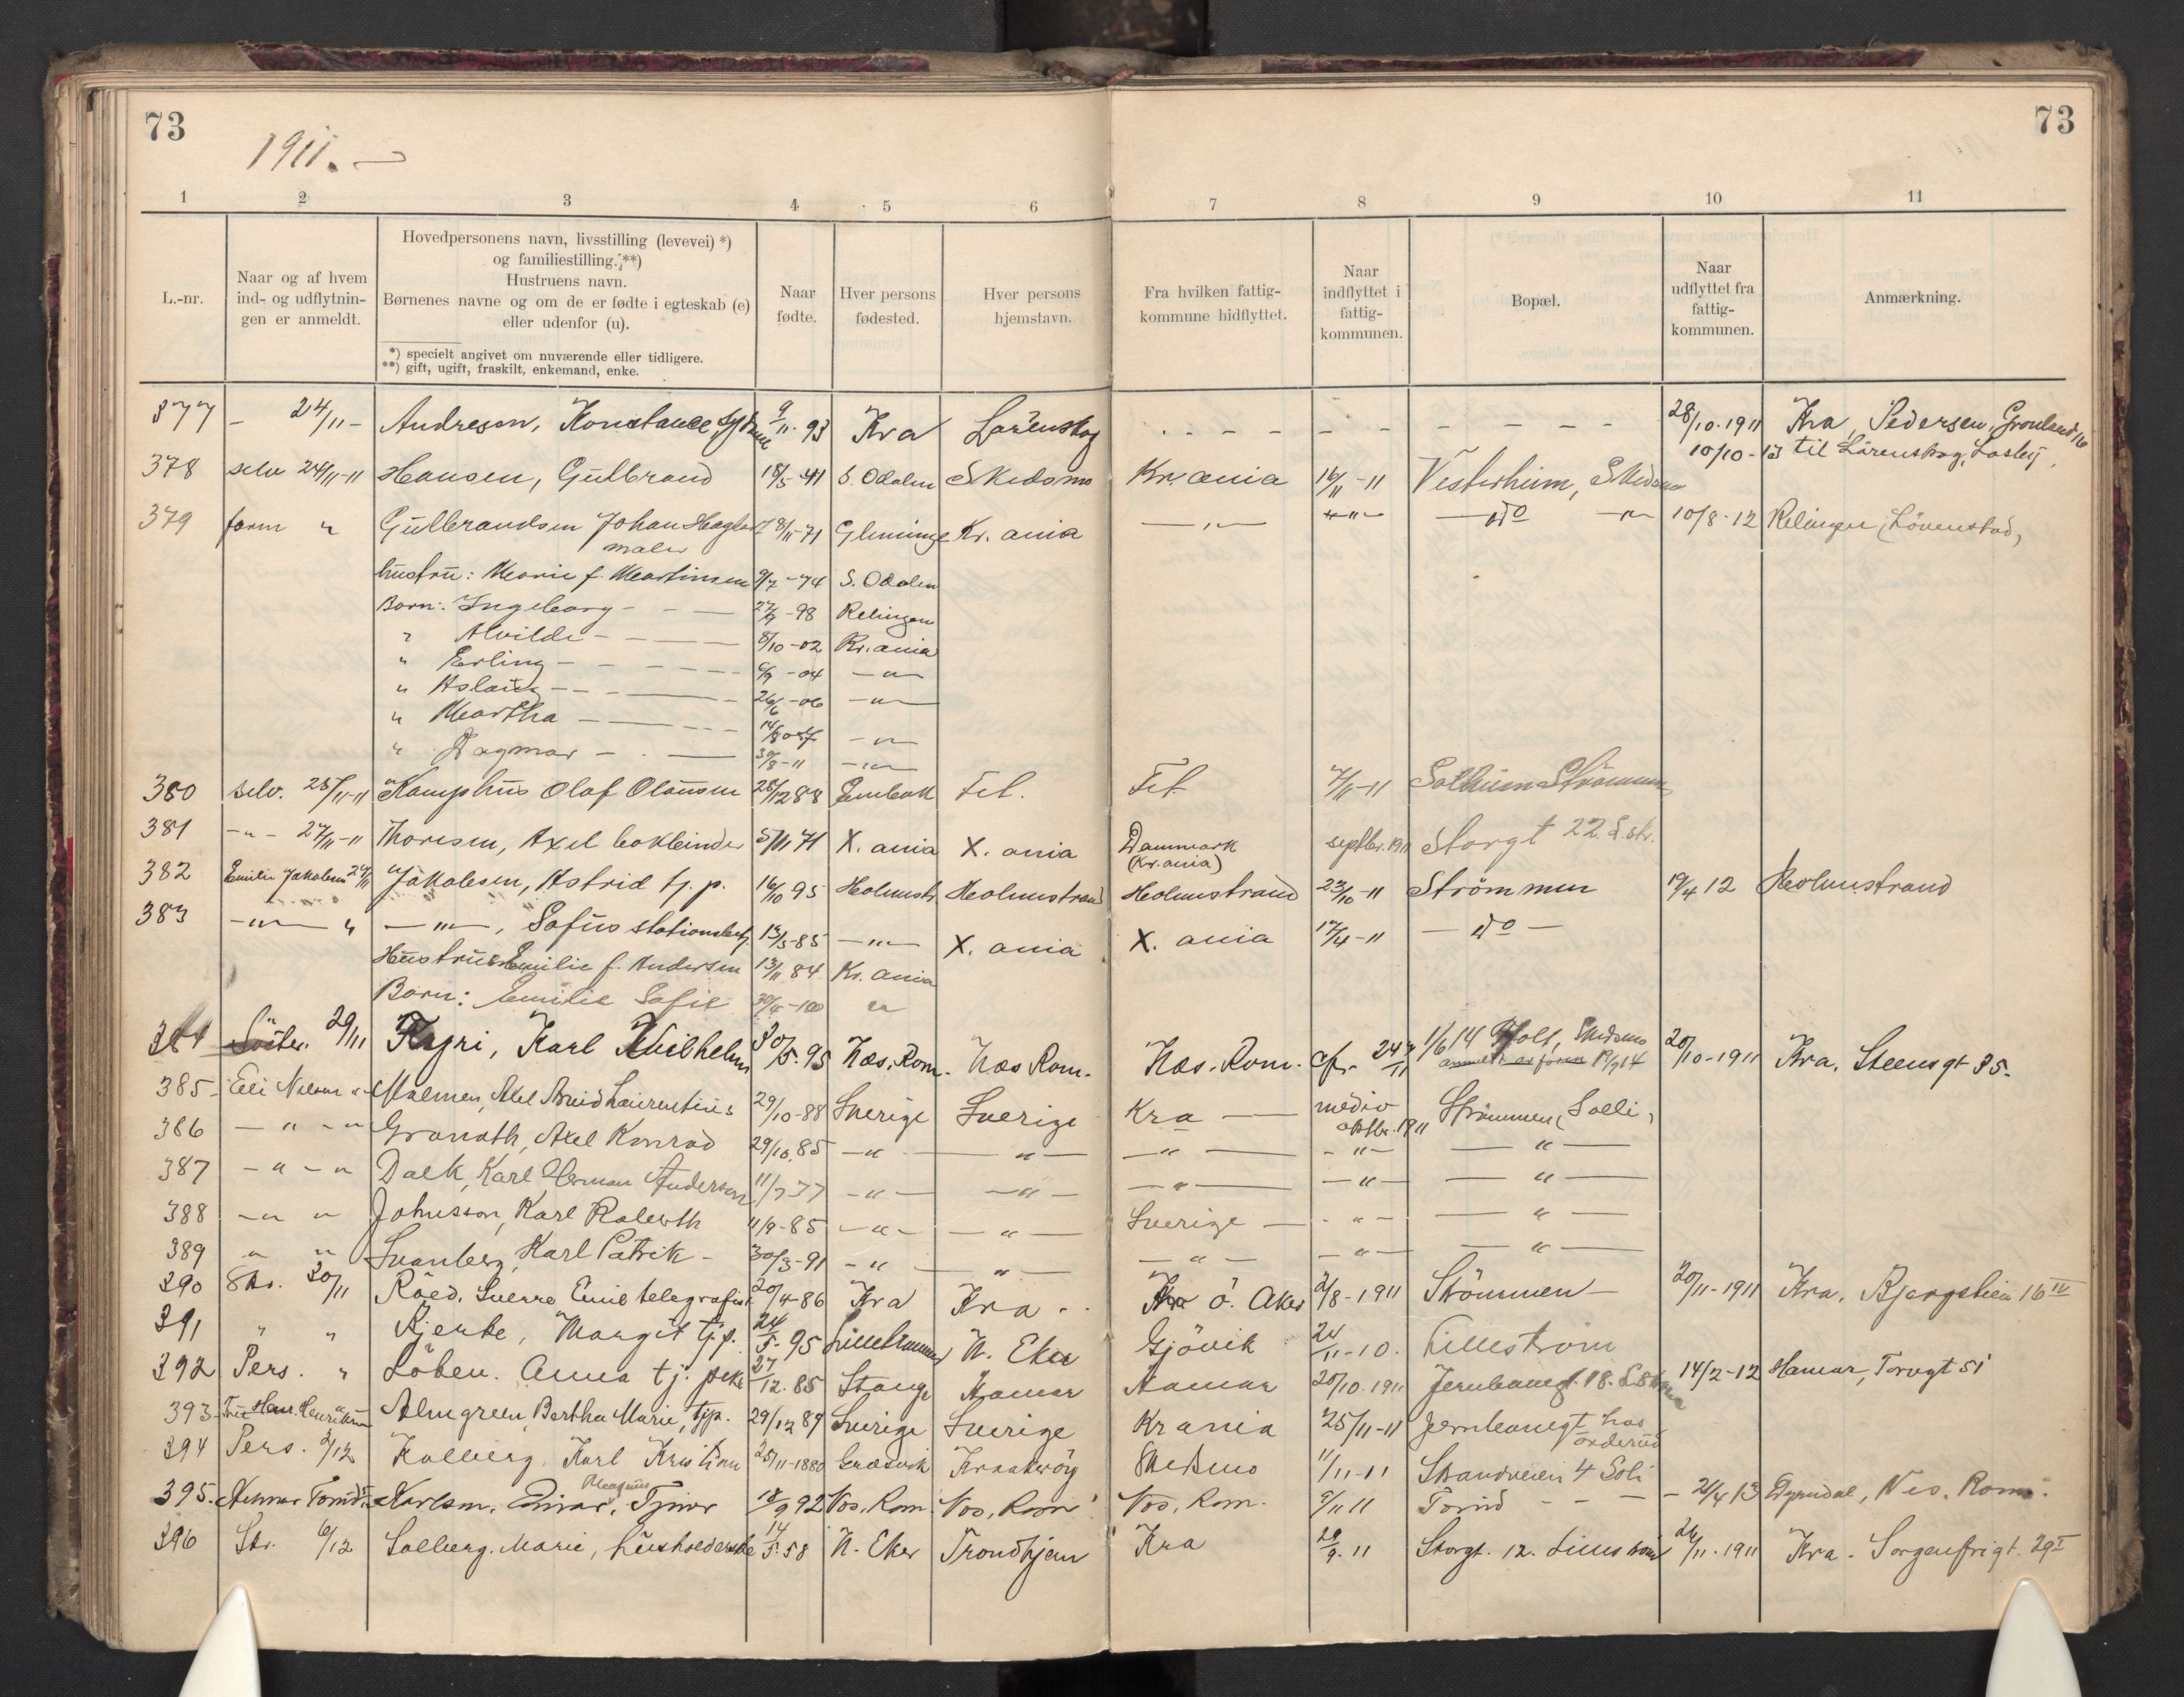 73
73
1911. —
1 2 3 4 5 6 7 8 9 10 11
L.-nr.
Naar og af hvem
ind- og udflytnin-
gen er anmeldt.
Hovedpersonens navn, livsstilling (levevei) *)
og familiestilling. **)
Hustruens navn.
Børnenes navne og om de er fødte i egteskab (e)
eller udenfor (u).
*) specielt angivet om nuværende eller tidligere.
**) gift, ugift, fraskilt, enkemand, enke.
Naar
fødte.
Hver persons
fødested.
Hver persons
hjemstavn.
Fra hvilken fattig-
kommune hidflyttet.
Naar
indflyttet i
fattig-
kommunen.
Bopæl.
Naar
udflyttet fra
fattig-
kommunen.
Anmærkning.
377 – 24/11 – Andresen, Konstance 9/11. 93 Kra Lørenskog – – – – 28/10. 1911 Kra, Pedersen, Grønland 16
10/10-13 til Lørenskog, Losby
378 selv 24/11-11 Hansen, Gulbrand 18/5-41 S. Odalen Skedsmo Kr.ania 16/11-11 Vesterheim,
379 form " Gulbrandsen Johan 8/11-71 Glemminge Kr.ania —"— —"— — do — 10/8-12 Relingen, Lövenstad,
maler
hustru: Marie f. Martinsen 9/7-74 S. Odalen
Born: Ingeborg – – — -98 Relingen
" Alvilde – – — 8/10-02 Kr.ania
" Erling – – — 6/9-04 —"—
" Aslaug – – — 26/6-06 —"—
" Martha – — 14/8 07 —"—
" Dagmar – — 30/8-11 —"—
380 selv. 25/11-11 Kamphus Olaf Olausen 28/12 88 Enebak Fet. Fet 7/11-11 Solheim Strömmen
381 –"– 27/11-11 Thoresen, Axel bokbinder 5/11 71 X.ania X.ania Danmark septbr. 1911 Storgt 22. L.str.
(Kr.ania)
382 Emilie Jakobsen Jakobsen, Astrid tj. p. 16/10 95 Holmestr Holmestrand Holmestrand 23/10-11 Strömmen 19/4 12 Holmestrand
383 —"— " —"—, Sofus stationsbetj. 13/5-85 —"— X.ania X.ania 17/4-11 — do —
Hustru: Emilie f. Andersen 13/11 84 Kr.ania
Barn: Emilie Sofie 30/4-10 "
384 29/11 Fagri, Karl Vilhelm 30/5. 95 Næs, Rom. Næs Rom. Næs. Rom. 1/6 14 Holt, Skedsmo 20/10-1911 Kra, Steensgt 35.
385 – Eli Nilsen " Malmen, Axel Arvid Laurentius 29/10-88 Sverige Sverige Kra — medio Strømmen (Solli)
oktbr. 1911
386 —"—" Granath, Axel Konrad 29/10. 85 —"— —"— —"— –"– —"—
387 –"–" Dalk, Karl Herman Anderson 11/7 37 —"— —"— —"— —"— —"—
388 —" " Johnsson, Karl Ralewth 4/9-85 —"— —"— Sverige — –"– —"—
389 " " Svanberg, Karl Patrik – 30/3-91 –"– —"— —"— —"— —"—
390 Sks. 30/11 Röed, Sverre Emil telegrafist 20/4-86 Kra Kra. Ö. Aker 2/8-1911 Strömmen – 20/11-1911 Kra, Bjergstien 16 IV
391 " " Bjerke, Margit tjp. 24/5. 95 Lillehammer N. Eker Gjövik 24/11-10. Lillestrøm
392 Pers. " Löben. Anna tj. peke 27/12. 85 Stange Hamar Hamar 20/10. 1911 Jernbanegt. 18. 14/2-12 Hamar, Torvgt 51
393 Fru Henriksen Almgreen, Bertha Marie, tjp. 29/12 89 Sverige Sverige Krania 25/11-11 Jernbanegt hos
394 Pers. 2/12 Kolberg, Karl Kristian 25/11-1880 Kraakerøy Skedsmo 11/11-11 Strandveien 4 Soli
395. Karlsen, Einar, Tjener 18/9 92 Nes, Rom. Nes, Rom. Nes, Rom. 9/11 11 – – — 21/4 13 Nes. Rom.
Magnus
396 Str. 6/12 Solberg. Marie, husholderske 14/5. 58 N. Eker Trondhjem Kra 29/9. 11 Storgt. 12. Lillestrøm 26/11. 1911 Kra. Sorgenfrigt. 29 I